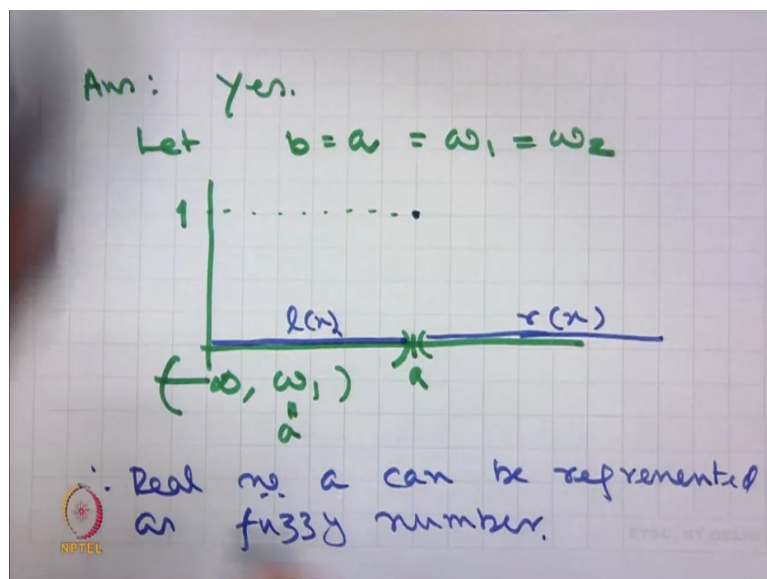 Ans: Yes.
Let b = a = ω₁ = ω₂
1
l(x) r(x)
(-∞, ω₁) a
"
a
∴ Real no. a can be represented
as fuzzy number.
NPTEL
ETSC, IIT DELHI